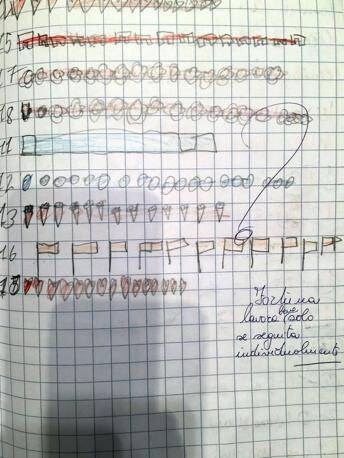 15
17
18
11
12
13
16
18
Martina
lavora bene solo
se seguita
individualmente